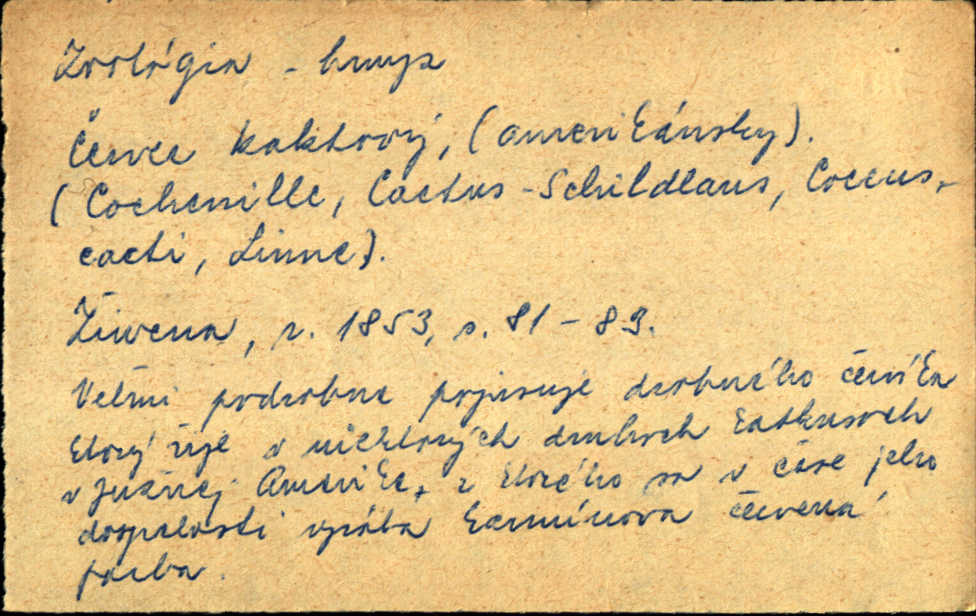 Zoológia - hmyz
Červec kaktový, (amerikánsky).
(Cochenille, Cactus-Schildlaus, Coccus,
cacti, Linne).
Živena, r. 1853, s. 81-89.
Veľmi podrobne popisuje drobného červíka
ktorý žije v niektorých druhoch kaktusoch
v južnej Amerike, z ktorého sa v čase jeho
dospelosti vyrába karmínova červená
farba.